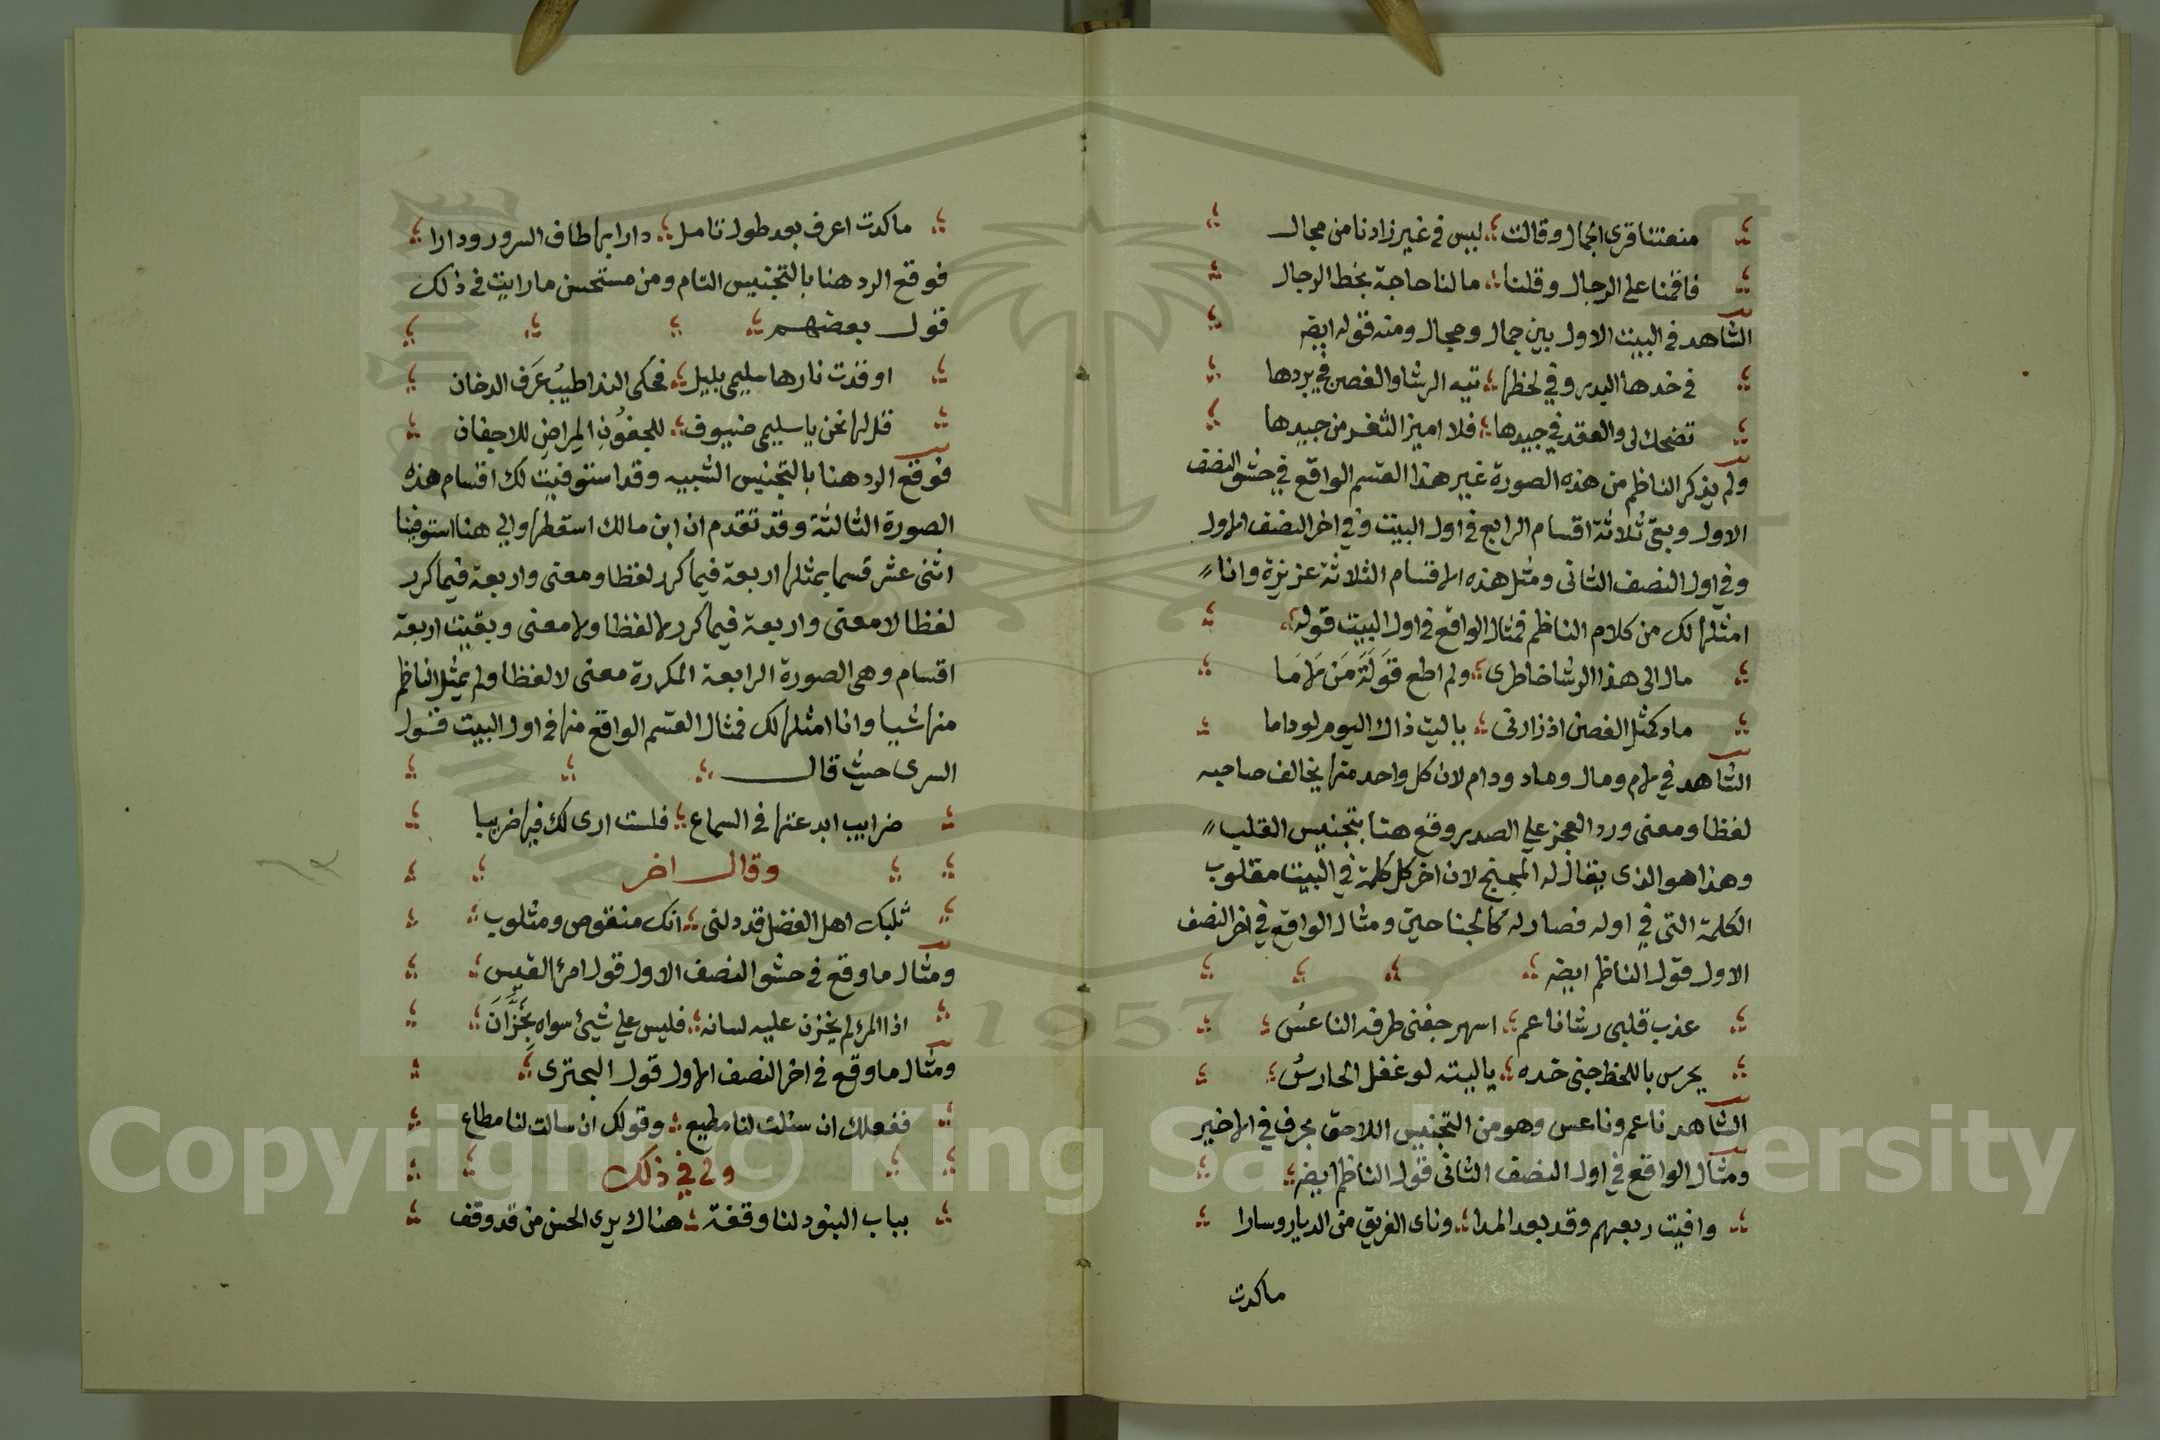 منعتنا قرى الجمال وقالت ؛ ليس في غير زادنا من مجال
فاقمنا على الرجال وقلنا ؛ ما لنا حاجة بخط الرجال
الشاهد في البيت الاول بين جمال ومجال ومنه قوله ايضه
في خدها البدر وفي لحظها ؛ تيه الرشا والغصن في بردها
تضحك لي والعقد في جيدها ؛ فلا اميز الثغر من جيدها
ولم يذكر الناظم من هذه الصورة غير هذا القسم الواقع في حشو النصف
الاول وبقى ثلاثة اقسام الرابع في اول البيت وفي اخر النصف الاول
وفي اول النصف الثانى ومثل هذه الاقسام الثلاثة عزيزة وانا
امثلها لك من كلام الناظم فمثال الواقع في اول البيت قوله
مال الى هذا الرشا خاطرى ؛ ولم اطع قَولَةَ مَن لَامَا
ماد كمثل الغصن اذ زارنى ؛ ياليت ذاك اليوم لو داما
الشاهد في لام ومال وماد ودام لان كل واحد منها يخالف صاحبه
لفظا ومعنى ورد العجز على الصدر وقع هنا بتجنيس القلب
وهذا هو الذى يقال له المجنح لان اخر كل كلمة في البيت مقلوب
الكلمة التى في اوله فصار له كالجناحين ومثال الواقع في اخر النصف
الاول قول الناظم ايضه
عذب قلبى رشا ناعم ؛ اسهر جفنى طرفه الناعسُ
يحرس باللحظ جنى خده ؛ ياليته لو غفل الحارسُ
الشاهد ناعم وناعس وهو من التجنيس اللاحق بحرف في الاخير
ومثال الواقع في اول النصف الثانى قول الناظم ايضه
وافيت ربعهم وقد بعد المدا ؛ وناى الفريق من الديار وسارا
ماكدت
ماكدت اعرف بعد طول تامل ؛ دارا بها طاف السرور ودارا
فوقع الرد هنا بالتجنيس التام ومن مستحسن ما رايت في ذلك
قول بعضهم
اوقدت نارها سليمى بليل ؛ فحكى الندا طيبُ عَرَف الدخان
قل لها نحن يا سليمى ضيوف ؛ للجفُونِ المِراضِ لا للاجفان
فوقع الرد هنا بالتجنيس الشبيه وقد استوفيت لك اقسام هذه
الصورة الثالثة وقد تقدم ان ابن مالك اسقطها والى هنا استوفينا
اثنى عشر قسما بمثلها اربعة فيما كرر لفظا ومعنى واربعة فيما كرر
لفظا لا معنى واربعة فيما كرر لا لفظا ولا معنى وبقيت اربعة
اقسام وهى الصورة الرابعة المكررة معنى لا لفظا ولم يمثل الناظم
منها شيا وانا امثلها لك فمثال القسم الواقع منها في اول البيت قول
السرى حيث قال
ضرايب ابدعتها في السماع ؛ فلست ارى لك فيها ضريبا
وقال اخر
ثلبك اهل الفضل قد دلنى ؛ انك منقوص ومثلوب
ومثال ما وقع في حشو النصف الاول قول امرئ القيس
اذا المرء لم يخزن عليه لسانه ؛ فليس على شيئ سواه بخَزَّانَ
ومثال ما وقع في اخر النصف الاول قول البحترى
ففعلك ان سئلت لنا مطيع ؛ وقولك ان سالت لنا مطاع
ولى في ذلك
بباب البنود لنا وقفة ؛ هناك يرى الحسن من قد وقف
1957
Copyright © King Saud University